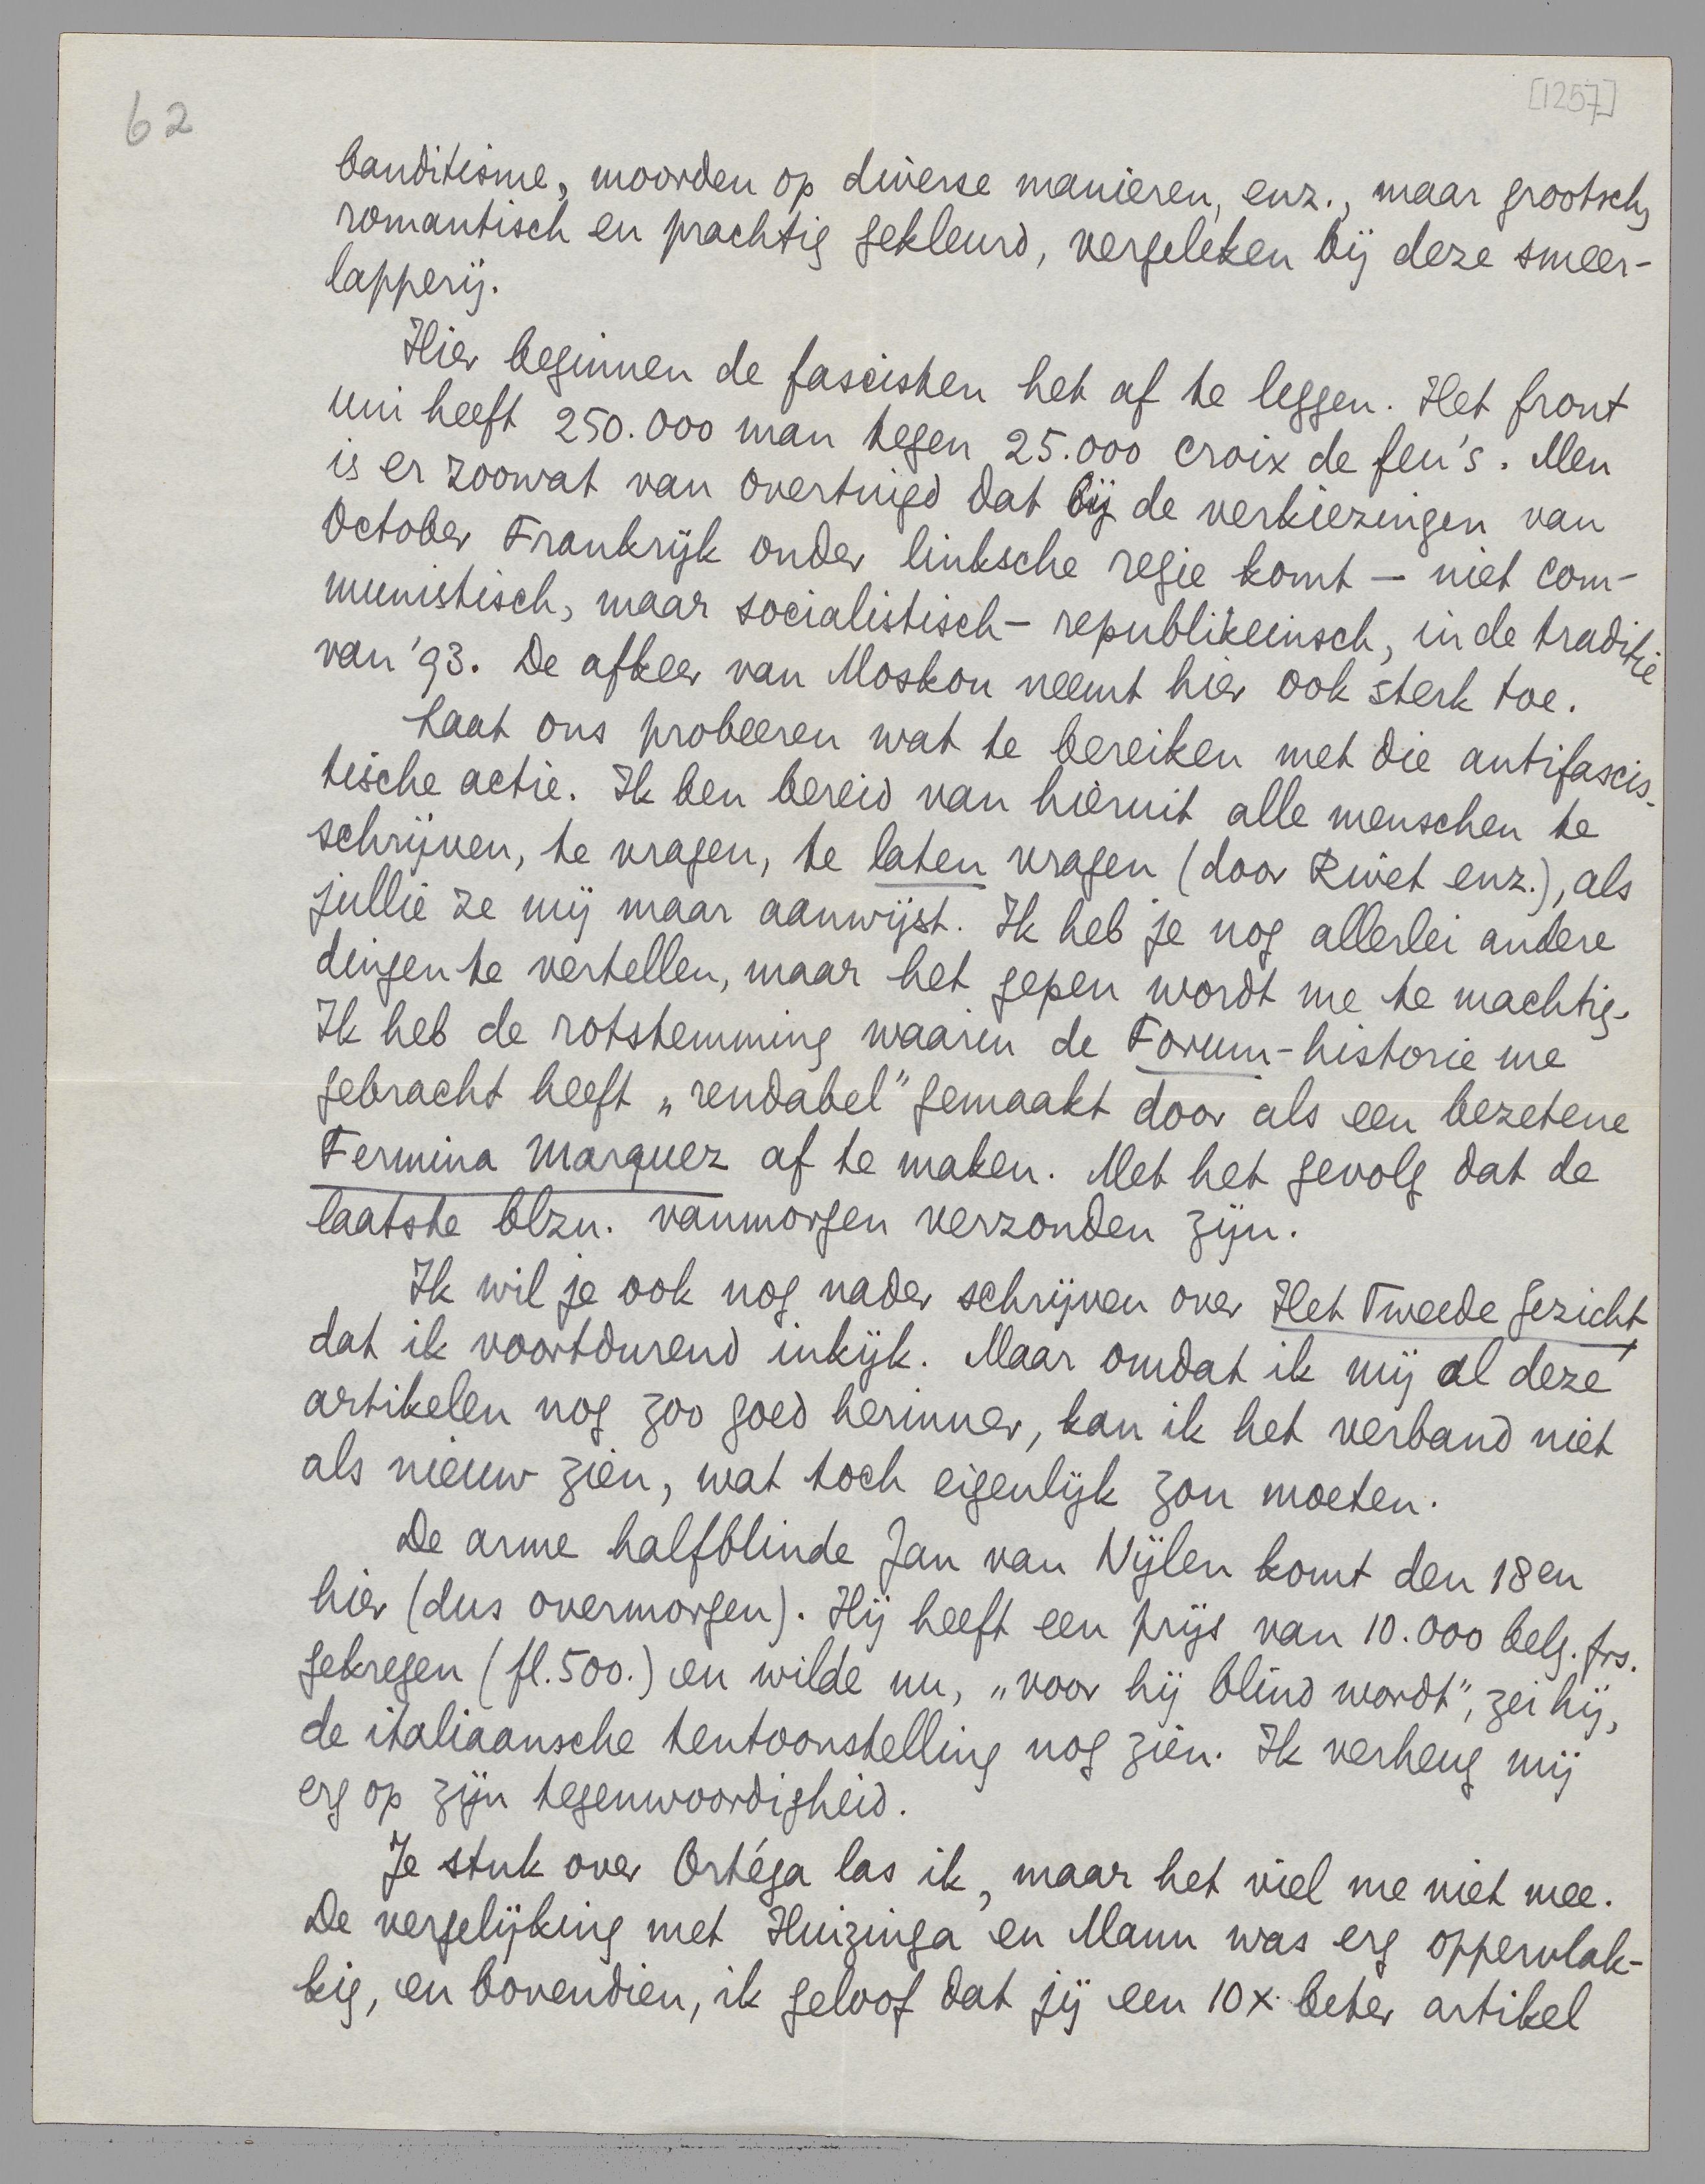 62
[1257]
banditisme, moorden op diverse manieren, enz., maar grootsch,
romantisch en prachtig gekleurd, vergeleken bij deze smeer-
lapperij.
Hier beginnen de fascisten het af te leggen. Het front
uni heeft 250.000 man tegen 25.000 croix de feu's. Men
is er zoowat van overtuigd dat bij de verkiezingen van
October Frankrijk onder linksche regie komt — niet com-
munistisch, maar socialistisch-republikeinsch, in de traditie
van '93. De afkeer van Moskou neemt hier ook sterk toe.
Laat ons probeeren wat te bereiken met die antifascis-
tische actie. Ik ben bereid van hieruit alle menschen te
schrijven, te vragen, te laten vragen (door Rivet enz.), als
jullie ze mij maar aanwijst. Ik heb je nog allerlei andere
dingen te vertellen, maar het gepen wordt me te machtig.
Ik heb de rotstemming waarin de Forum-historie me
gebracht heeft „rendabel" gemaakt door als een bezetene
Fermina Marquez af te maken. Met het gevolg dat de
laatste blzn. vanmorgen verzonden zijn.
Ik wil je ook nog nader schrijven over Het Tweede Gezicht,
dat ik voortdurend inkijk. Maar omdat ik mij al deze
artikelen nog zoo goed herinner, kan ik het verband niet
als nieuw zien, wat toch eigenlijk zou moeten.
De arme halfblinde Jan van Nijlen komt den 18en
hier (dus overmorgen). Hij heeft een prijs van 10.000 belg. frs.
gekregen (fl. 500.) en wilde nu, „voor hij blind wordt", zei hij,
de italiaansche tentoonstelling nog zien. Ik verheug mij
erg op zijn tegenwoordigheid.
Je stuk over Ortéga las ik, maar het viel me niet mee.
De vergelijking met Huizinga en Mann was erg oppervlak-
kig, en bovendien, ik geloof dat jij een 10x beter artikel